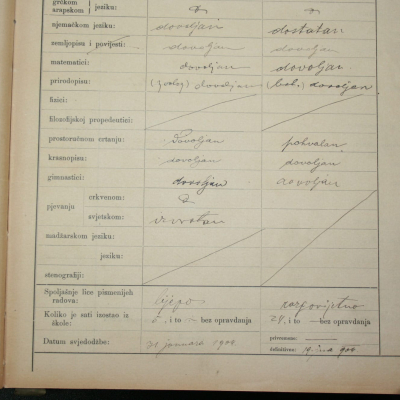 grčkom
arapskom } jeziku:
njemačkom jeziku: dovoljan dostatan
zemljopisu i povijesti: dovoljan dovoljan
matematici: dovoljan dovoljan
prirodopisu: (zoolog) dovoljan (bot.) dovoljan
fizici:
filozofijskoj propedeutici:
prostoručnom crtanju: Dovoljan pohvalan
krasnopisu: dovoljan dovoljan
gimnastici: dovoljan dovoljan
crkvenom:
pjevanju
svjetskom:
madžarskom jeziku:
jeziku:
stenografiji:
Spoljašnje lice pismenijeh
radova: lijepo
Koliko je sati izostao iz
škole: i to — bez opravdanja 24, i to — bez opravdanja
Datum svjedodžbe: januara